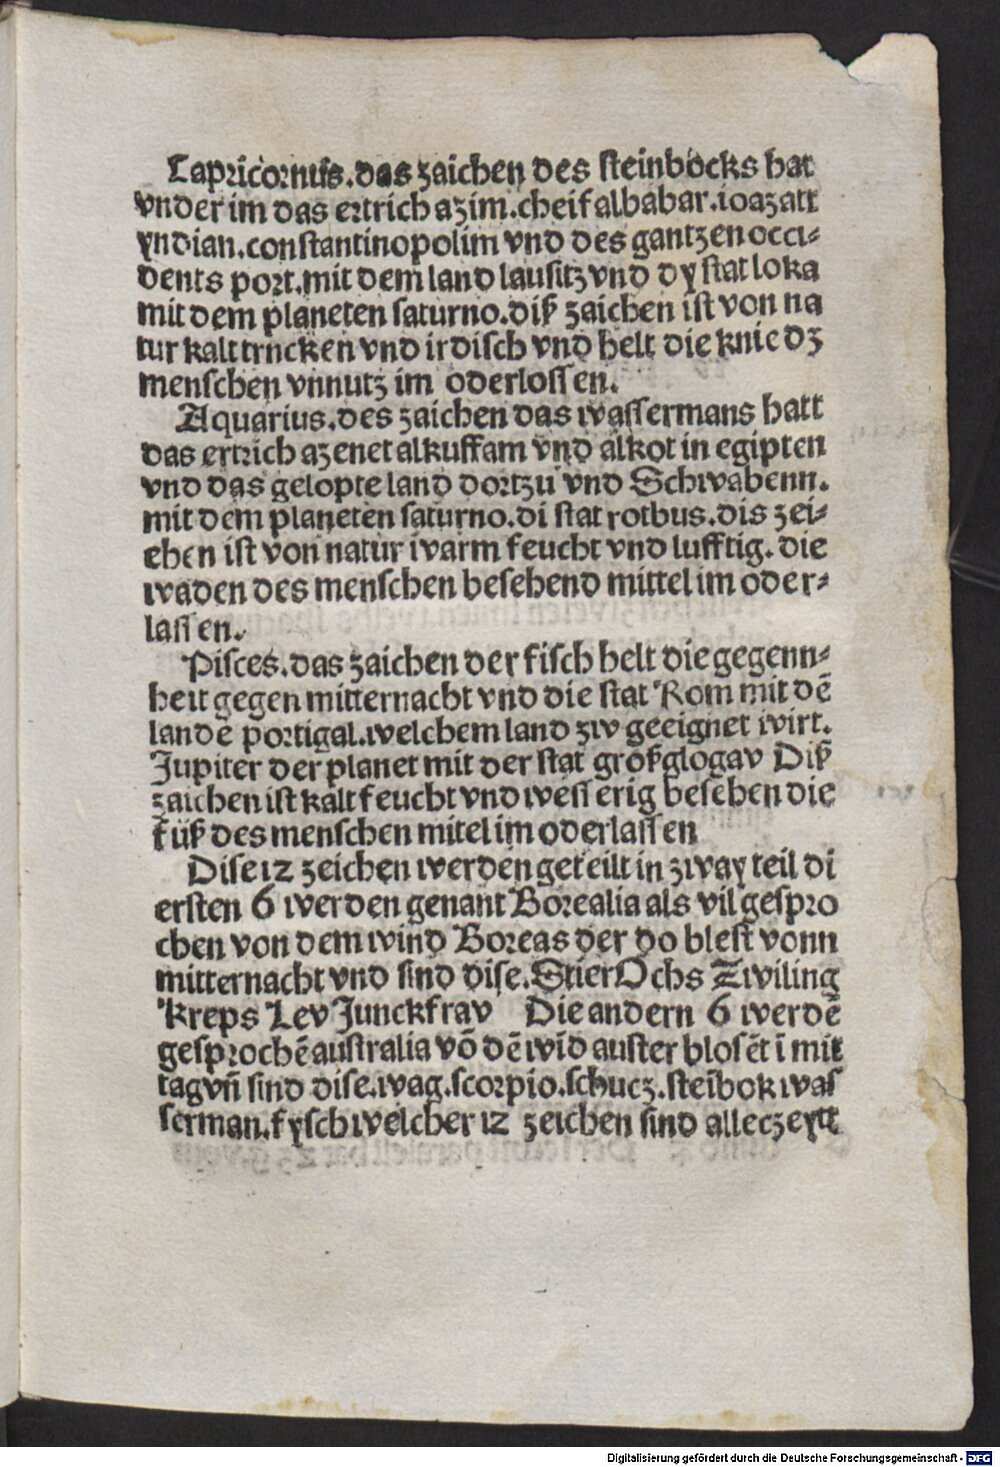 Capricornus.das zaichen des steinbocks hat
vnder im das ertrich azim.cheif albabar.ioazatt
yndian.constantinopolim vnd des gantzen occi-
dents port.mit dem land lausitz vnd dy stat loka
mit dem planeten saturno.diß zaichen ist von na
tur kalt trucken vnd irdisch vnd helt die knie dz
menschen vnnutz im oderlossen.
Aquarius.des zaichen das wassermans hatt
das ertrich azenet alkuffam vnd alkot in egipten
vnd das gelopte land dortzu vnd Schwabenn.
mit dem planeten saturno.di stat rotbus.dis zei-
chen ist von natur warm feucht vnd lufftig.die
waden des menschen besehend mittel im oder-
lassen.
Pisces.das zaichen der fisch helt die gegenn-
heit gegen mitternacht vnd die stat Rom mit dē
landē portigal.welchem land zw geeignet wirt.
Jupiter der planet mit der stat großglogav Diß
zaichen ist kalt feucht vnd wesserig besehen die
füß des menschen mitel im oderlassen
Dise 12 zeichen werden geteilt in zway teil di
ersten 6 werden genant Borealia als vil gespro
chen von dem wind Boreas der do blest vonn
mitternacht vnd sind dise.Stier Ochs Zwiling
Kreps Lev Junckfrav Die andern 6 werdē
gesprochē australia vō dē wīd auster blosēt ī mit
tag vn̄ sind dise.wag.scorpio.schucz.steībok was
serman.fysch welcher 12 zeichen sind alleczeytt
Digitalisierung gefördert durch die Deutsche Forschungsgemeinschaft - DFG